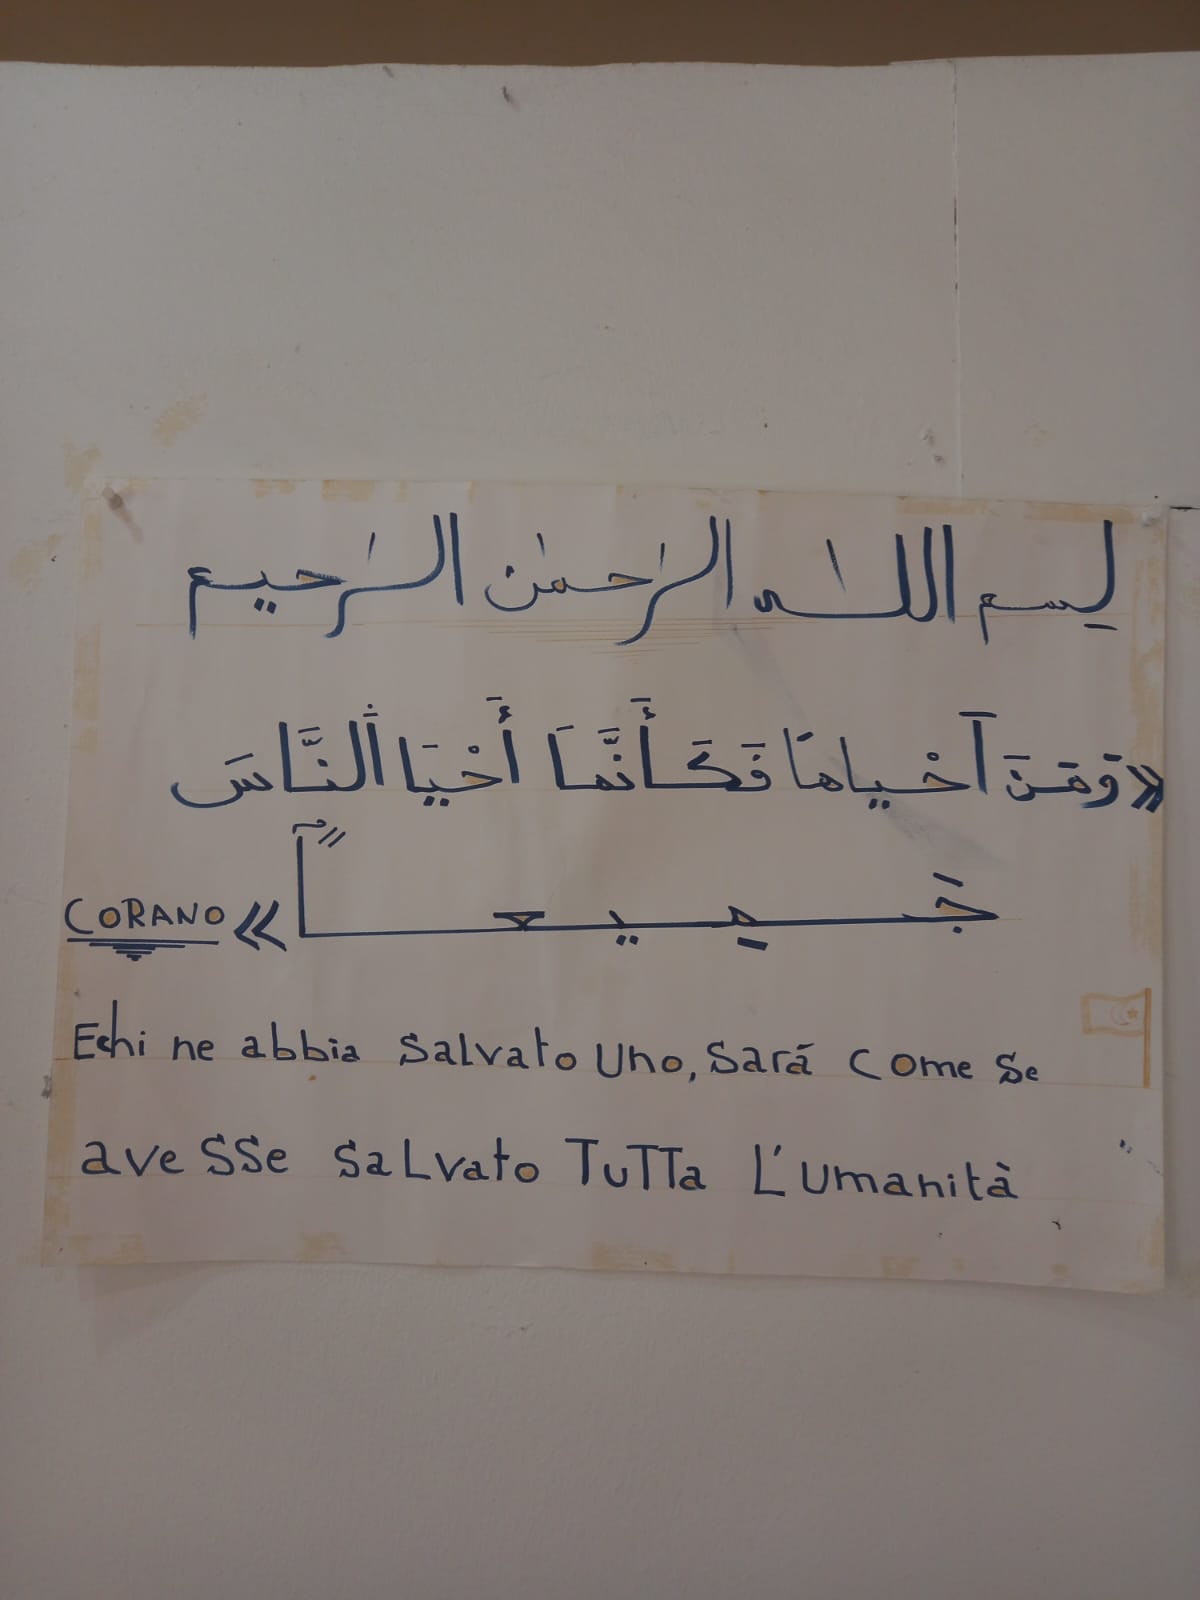 بسم الله الرحمٰن الرحيم
«وَمَنَ آحْياهَا فَكَأَنَّمَا أَحْيَا ٱلنَّاسَ
جَميعاً» CORANO
E chi ne abbia salvato uno, sará come se
avesse salvato TuTTa L'umanità